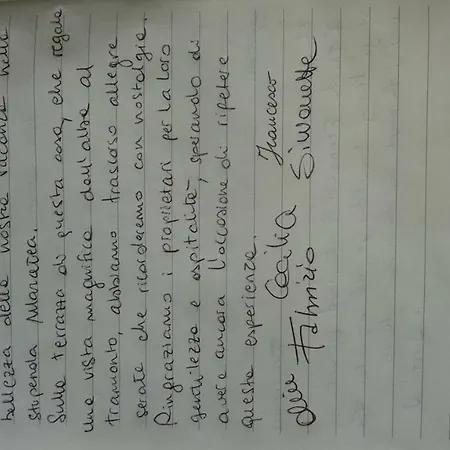 bellezza delle nostre vacanze nella
stupenda Maratea.
Sulla terrazza di questa casa, che regala
una vista magnifica dall'alba al
tramonto, abbiamo trascorso allegre
serate che ricorderemo con nostalgia.
Ringraziamo i proprietari per la loro
gentilezza e ospitalità, sperando di
avere ancora l'occasione di ripetere
questa esperienza.
Cecilia Francesco
Fabrizio Simonetta